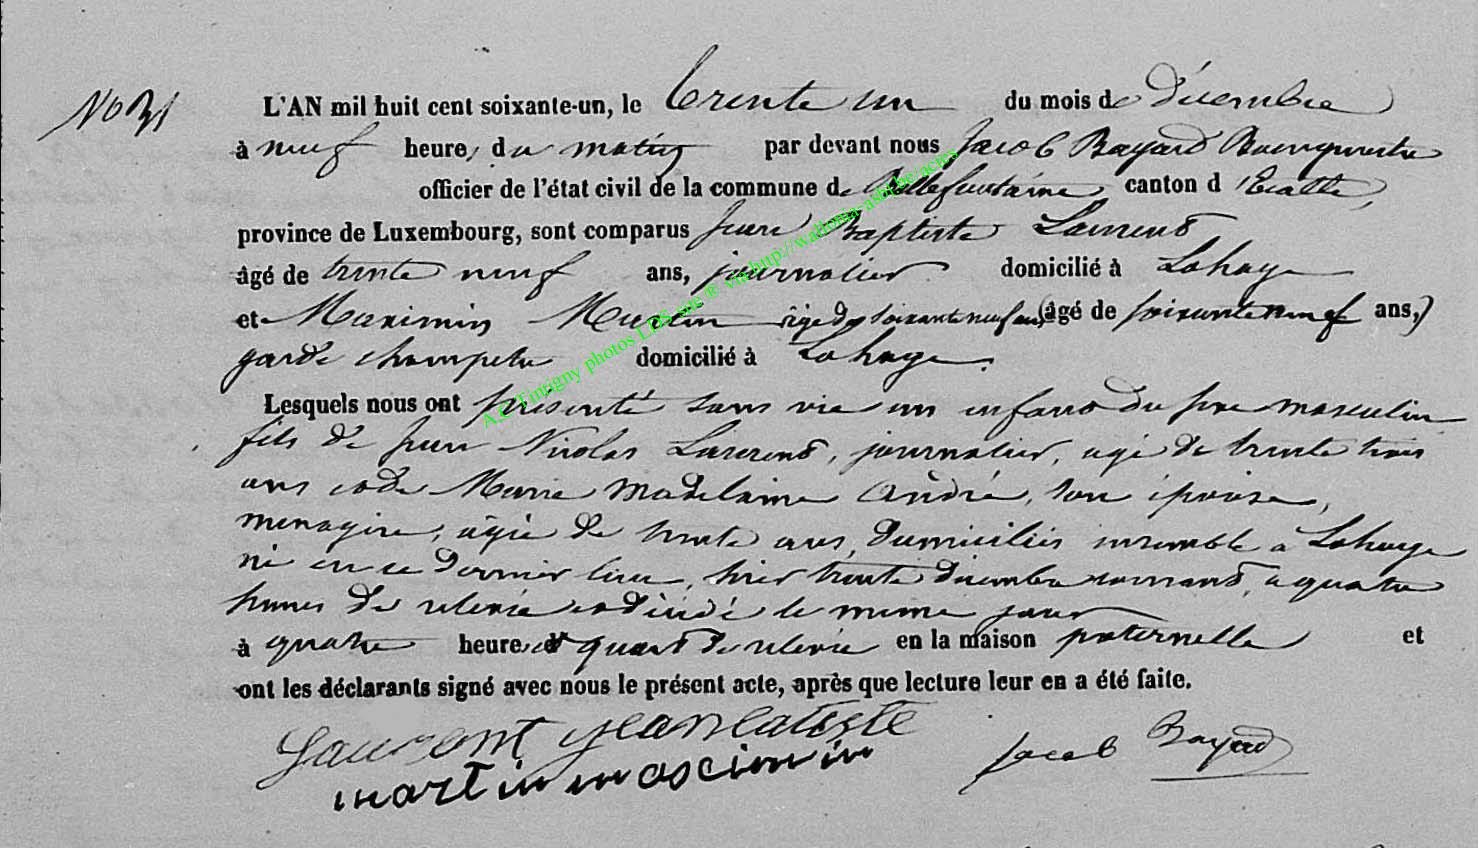 No 31
L'AN mil huit cent soixante-un, le trente un du mois de décembre
à neuf heures du matin par devant nous Jacob Bayard Bourgmestre
officier de l'état civil de la commune de Bellefontaine canton d'Etalle,
province de Luxembourg, sont comparus Jean Baptiste Laurent
âgé de trente neuf ans, journalier domicilié à Lahage
et Maximin Martin âgé de soixante neuf ans, (âgé de soixante neuf ans,)
garde champetre domicilié à Lahage.
Lesquels nous ont présenté sans vie un enfant du sexe masculin
fils de Jean Nicolas Laurent, journalier, agé de trente trois
ans et de Marie Madelaine André, son épouse,
menagère, agée de trente ans, domiciliés ensemble a Lahage
né en ce dernier lieu, hier trente décembre courant, a quatre
heures de relevée et décédé le meme jour
à quatre heures et quart de relevée en la maison paternelle et
ont les déclarants signé avec nous le présent acte, après que lecture leur en a été faite.
Laurent jeanbatiste
martin mascimin
Jacob Bayard
A.C. Tintigny photos LDS site ® via http://wallonia-asbl.be/actes